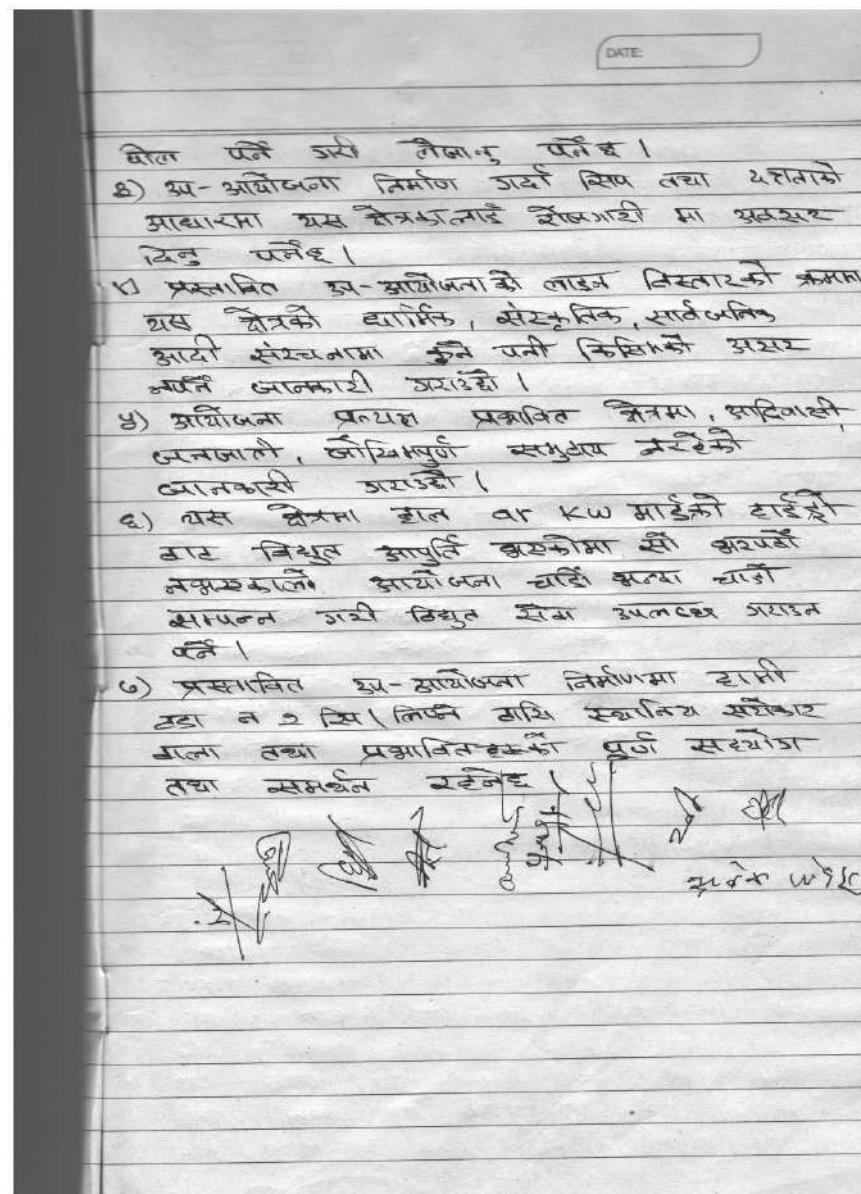 DATE:
पोल पर्ने गरी लैजानु पर्नेछ ।
३) उप-आयोजना निर्माण गर्दा सिप तथा दक्षताको
आधारमा यस क्षेत्रकालाई रोजगारी मा अवसर
दिनु पर्नेछ ।
४) प्रस्तावित उप-आयोजनाको लाइन विस्तारको क्रममा
यस क्षेत्रको धार्मिक, संस्कृतिक, सार्वजनिक
आदी संरचनामा कुनै पनी किसिमको असर
नपर्ने जानकारी गराउँदौ ।
५) आयोजना प्रत्यक्ष प्रभावित क्षेत्रमा, आदिवासी,
जनजाती, जोखिमपुर्ण समुदाय नरहेको
जानकारी गराउँदौ ।
६) यस क्षेत्रमा हाल KW माईक्रो हाईड्रो
बाट विद्युत आपुर्ति भएकोमा सो भरपर्दो
नभएकाले आयोजना चाँडो भन्दा चाँडो
सम्पन्न गरी विद्युत सेवा उपलब्ध गराउन
पर्ने ।
७) प्रस्तावित उप-आयोजना निर्माणमा हामी
वडा न २ सि । लिप्ने बासि स्थानिय सरोकार
वाला तथा प्रभावितहरुको पुर्ण सहयोग
तथा समर्थन रहनेछ ।